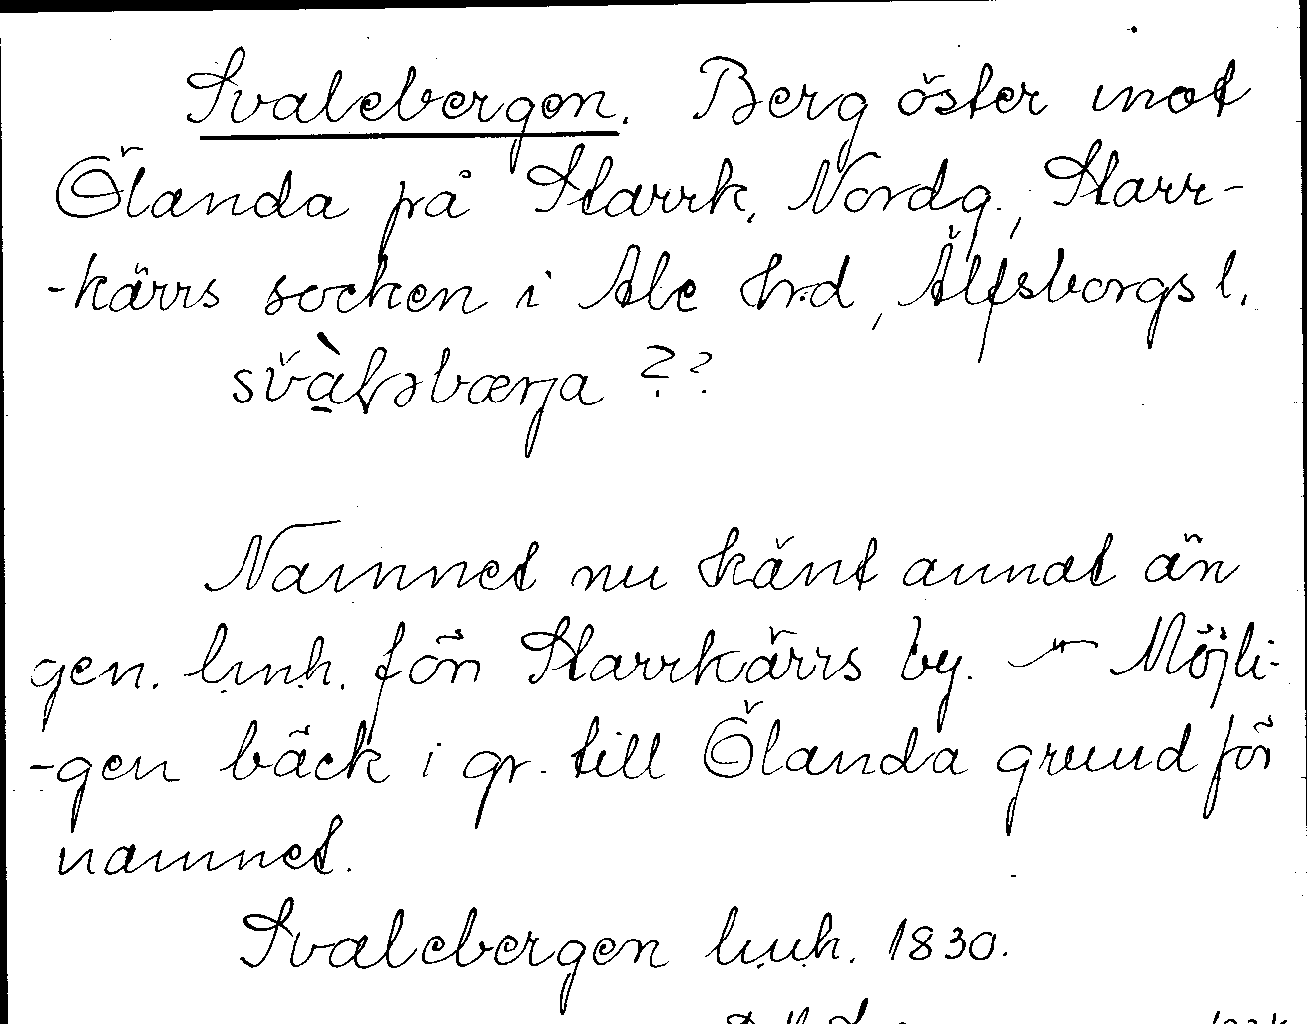 Svalebergen. Berg öster mot
Ölanda på Starrk. Nordg., Starr-
-kärrs socken i Ale hrd, Älfsborgs l.
svàlsbærja ??
Namnet nu känt annat än
gen. lmh. för Starrkärrs by. — Möjli-
-gen bäck i gr. till Ölanda grund för
namnet.
Svalebergen lmh. 1830.